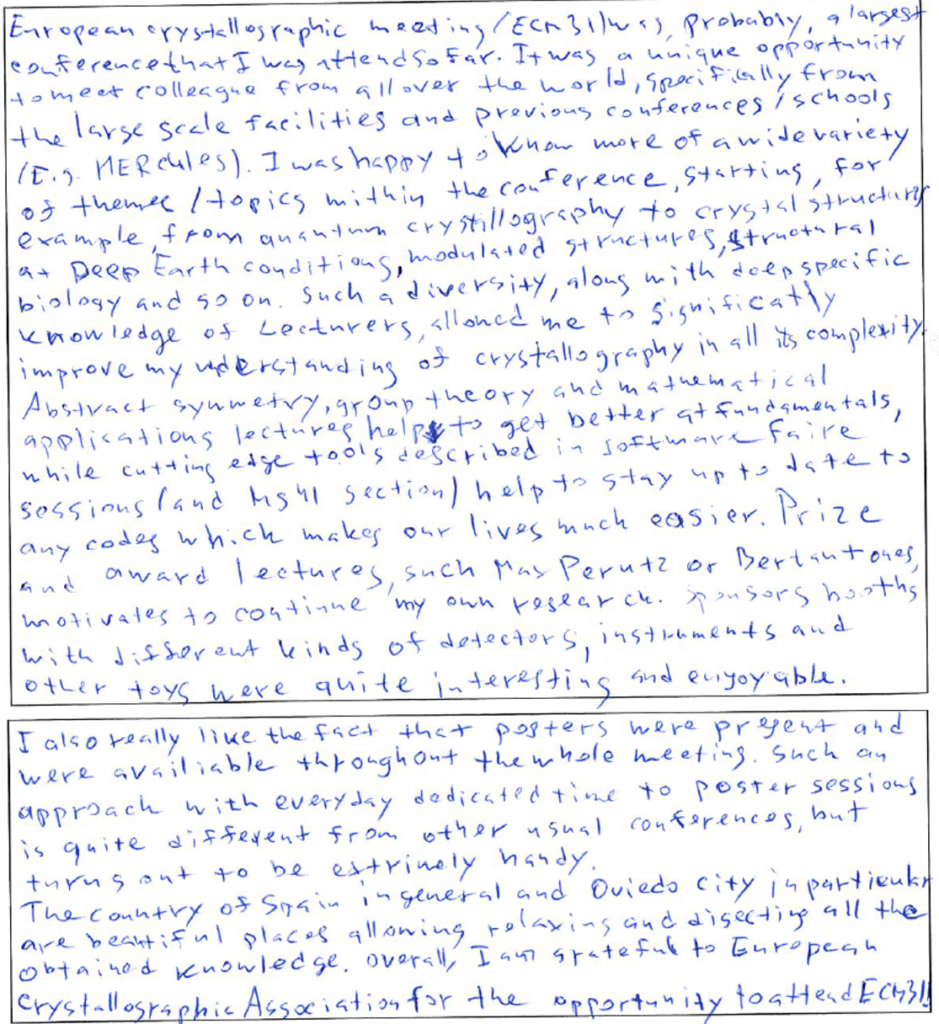 European crystallographic meeting (ECM31) was, probably, a largest
conference that I was attend so far. It was a unique opportunity
to meet colleague from all over the world, specifically from
the large scale facilities and previous conferences / schools
(E.g. HERCULES). I was happy to know more of a wide variety
of themes / topics within the conference, starting, for
example, from quantum crystillography to crystal structures
at Deep Earth conditions, modulated structures, structural
biology and so on. Such a diversity, along with deep specific
knowledge of Lecturers, allowed me to significatly
improve my understanding of crystallography in all its complexity.
Abstract symmetry, group theory and mathematical
applications lectures help to get better at fundamentals,
while cutting edge tools described in software faire
sessions (and MS41 section) help to stay up to date to
any codes which makes our lives much easier. Prize
and award lectures, such Max Perutz or Bertaut ones,
motivates to continue my own research. Sponsors booths
with different kinds of detectors, instruments and
other toys were quite interesting and enjoyable.
I also really like the fact that posters were present and
were availiable throughout the whole meeting. Such an
approach with everyday dedicated time to poster sessions
is quite different from other usual conferences, but
turns out to be extrimely handy.
The country of Spain in general and Oviedo city in particular
are beautiful places allowing relaxing and digecting all the
obtained knowledge. Overall, I am grateful to European
Crystallographic Association for the opportunity to attend ECM31!